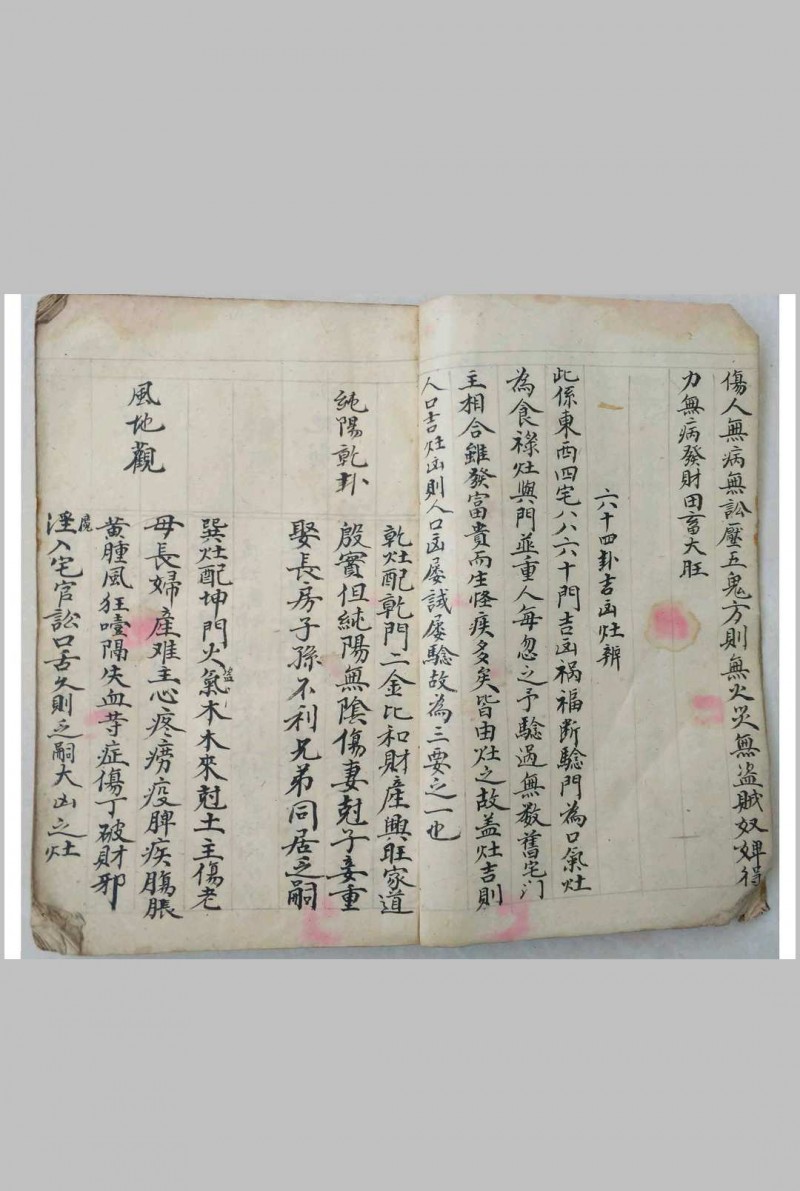 傷人無病無訟壓五鬼方則無火災無盜賊奴婢得
力無病發財田畜大旺
六十四卦吉凶灶辨
此係東西四宅八八六十門吉凶禍福斷驗門為口氣灶
為食祿灶與門並重人每忽之予驗過無數舊宅门
主相合雖發富貴而生怪疾多矣皆由灶之故盖灶吉則
人口吉灶凶則人口凶屡試屡驗故為三要之一也
純陽乾卦
乾灶配乾門二金比和財產興旺家道
殷實但純陽無陰傷妻尅子妾重
娶長房子孫不利兄弟同居乏嗣
風地觀
巽灶配坤門火氣木木來尅土主傷老
母長婦產难主心疼癆疫脾疾膓脹
黄腫風狂噎隔失血䓁症傷丁破財邪
魔
淫入宅官訟口舌久則乏嗣大凶之灶